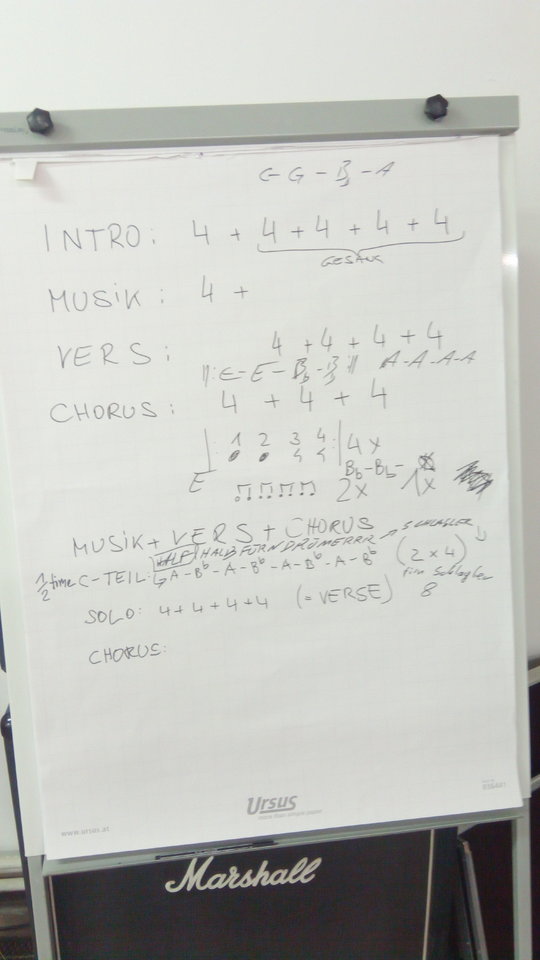 G - G - Bb - A
INTRO: 4 + 4 + 4 + 4 + 4
GESANG
MUSIK: 4 +
VERS: 4 + 4 + 4 + 4
||: E - E - Bb - Bb :|| A - A - A - A
CHORUS: 4 + 4 + 4
1 2 3 4 4x
Bb - Bb -
E 2x 1x
MUSIK + VERS + CHORUS
HALB FÜR'N DRUMERRR → SCHLAGLER
1/2 time C-TEIL: A - Bb - A - Bb - A - Bb - A - Bb (2 x 4)
fürn Schlagler
SOLO: 4 + 4 + 4 + 4 (= VERSE) 8
CHORUS:
Ursus
www.ursus.at
Marshall